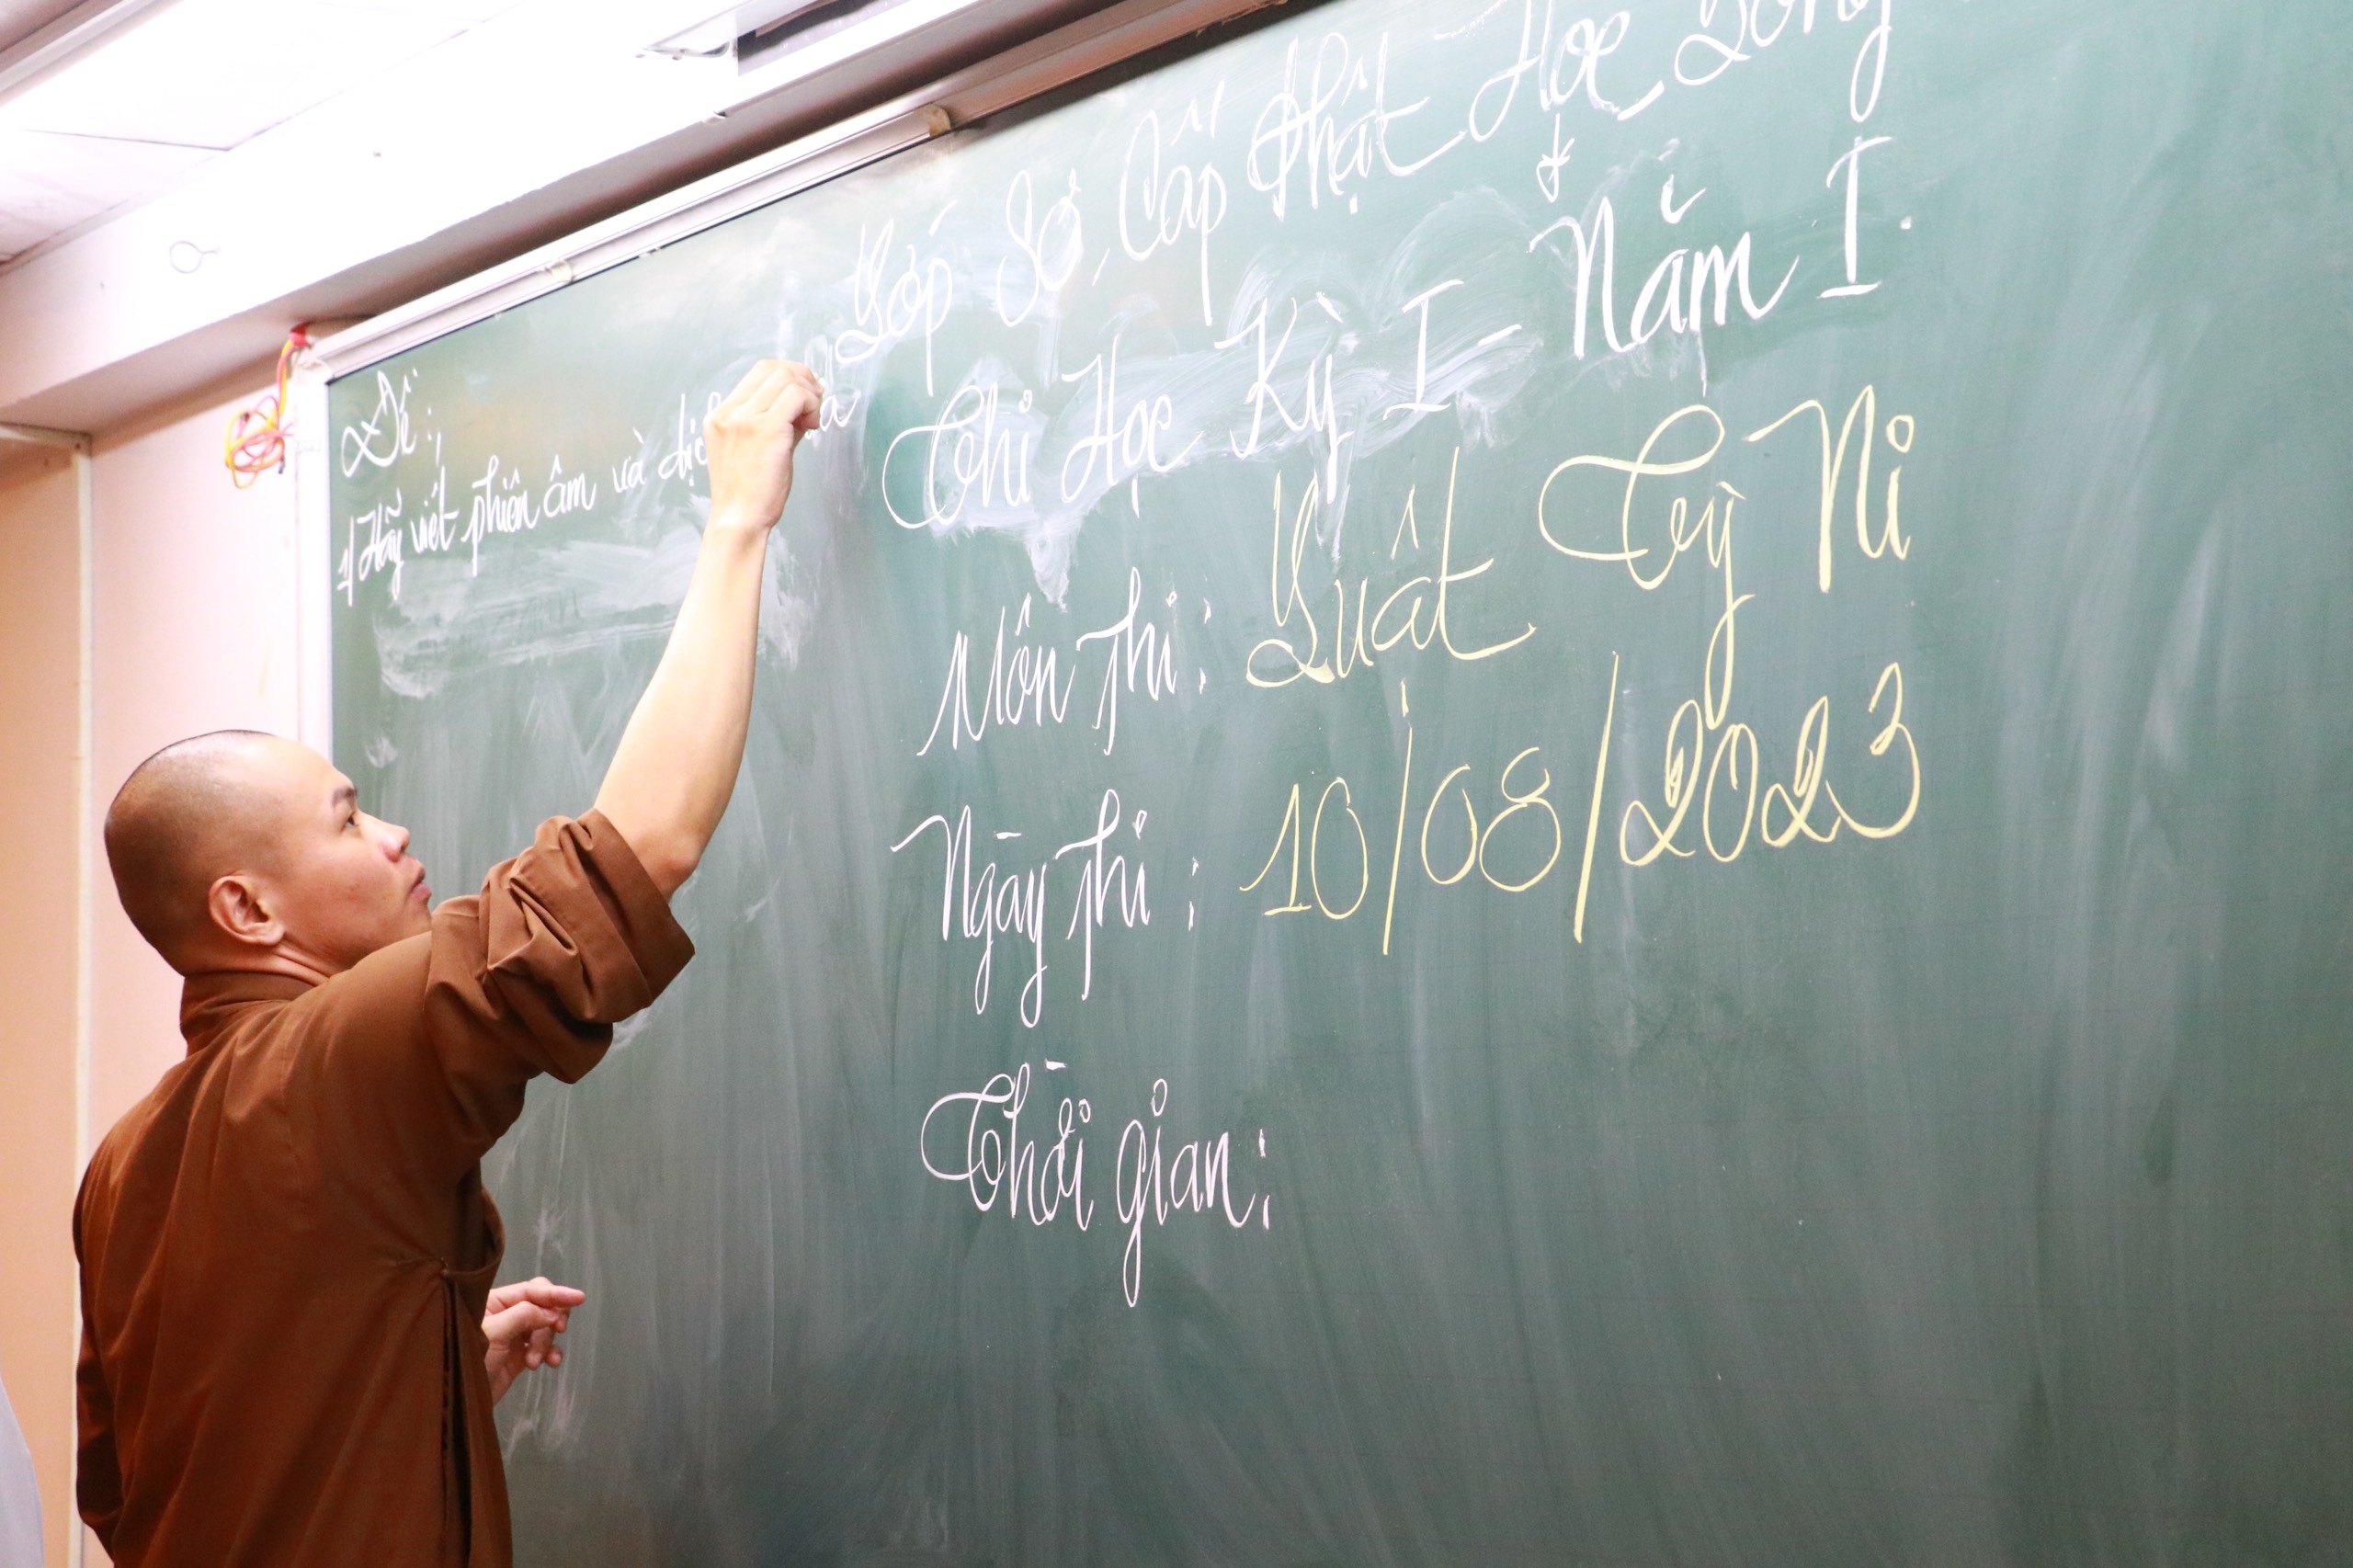 Lớp Sơ Cấp Phật Học Long
Thi Học Kỳ I - Năm I.
Môn thi: Luật Tỳ Ni
Ngày thi: 10/08/2023
Thời gian:
Đề:
1/ Hãy viết phiên âm và